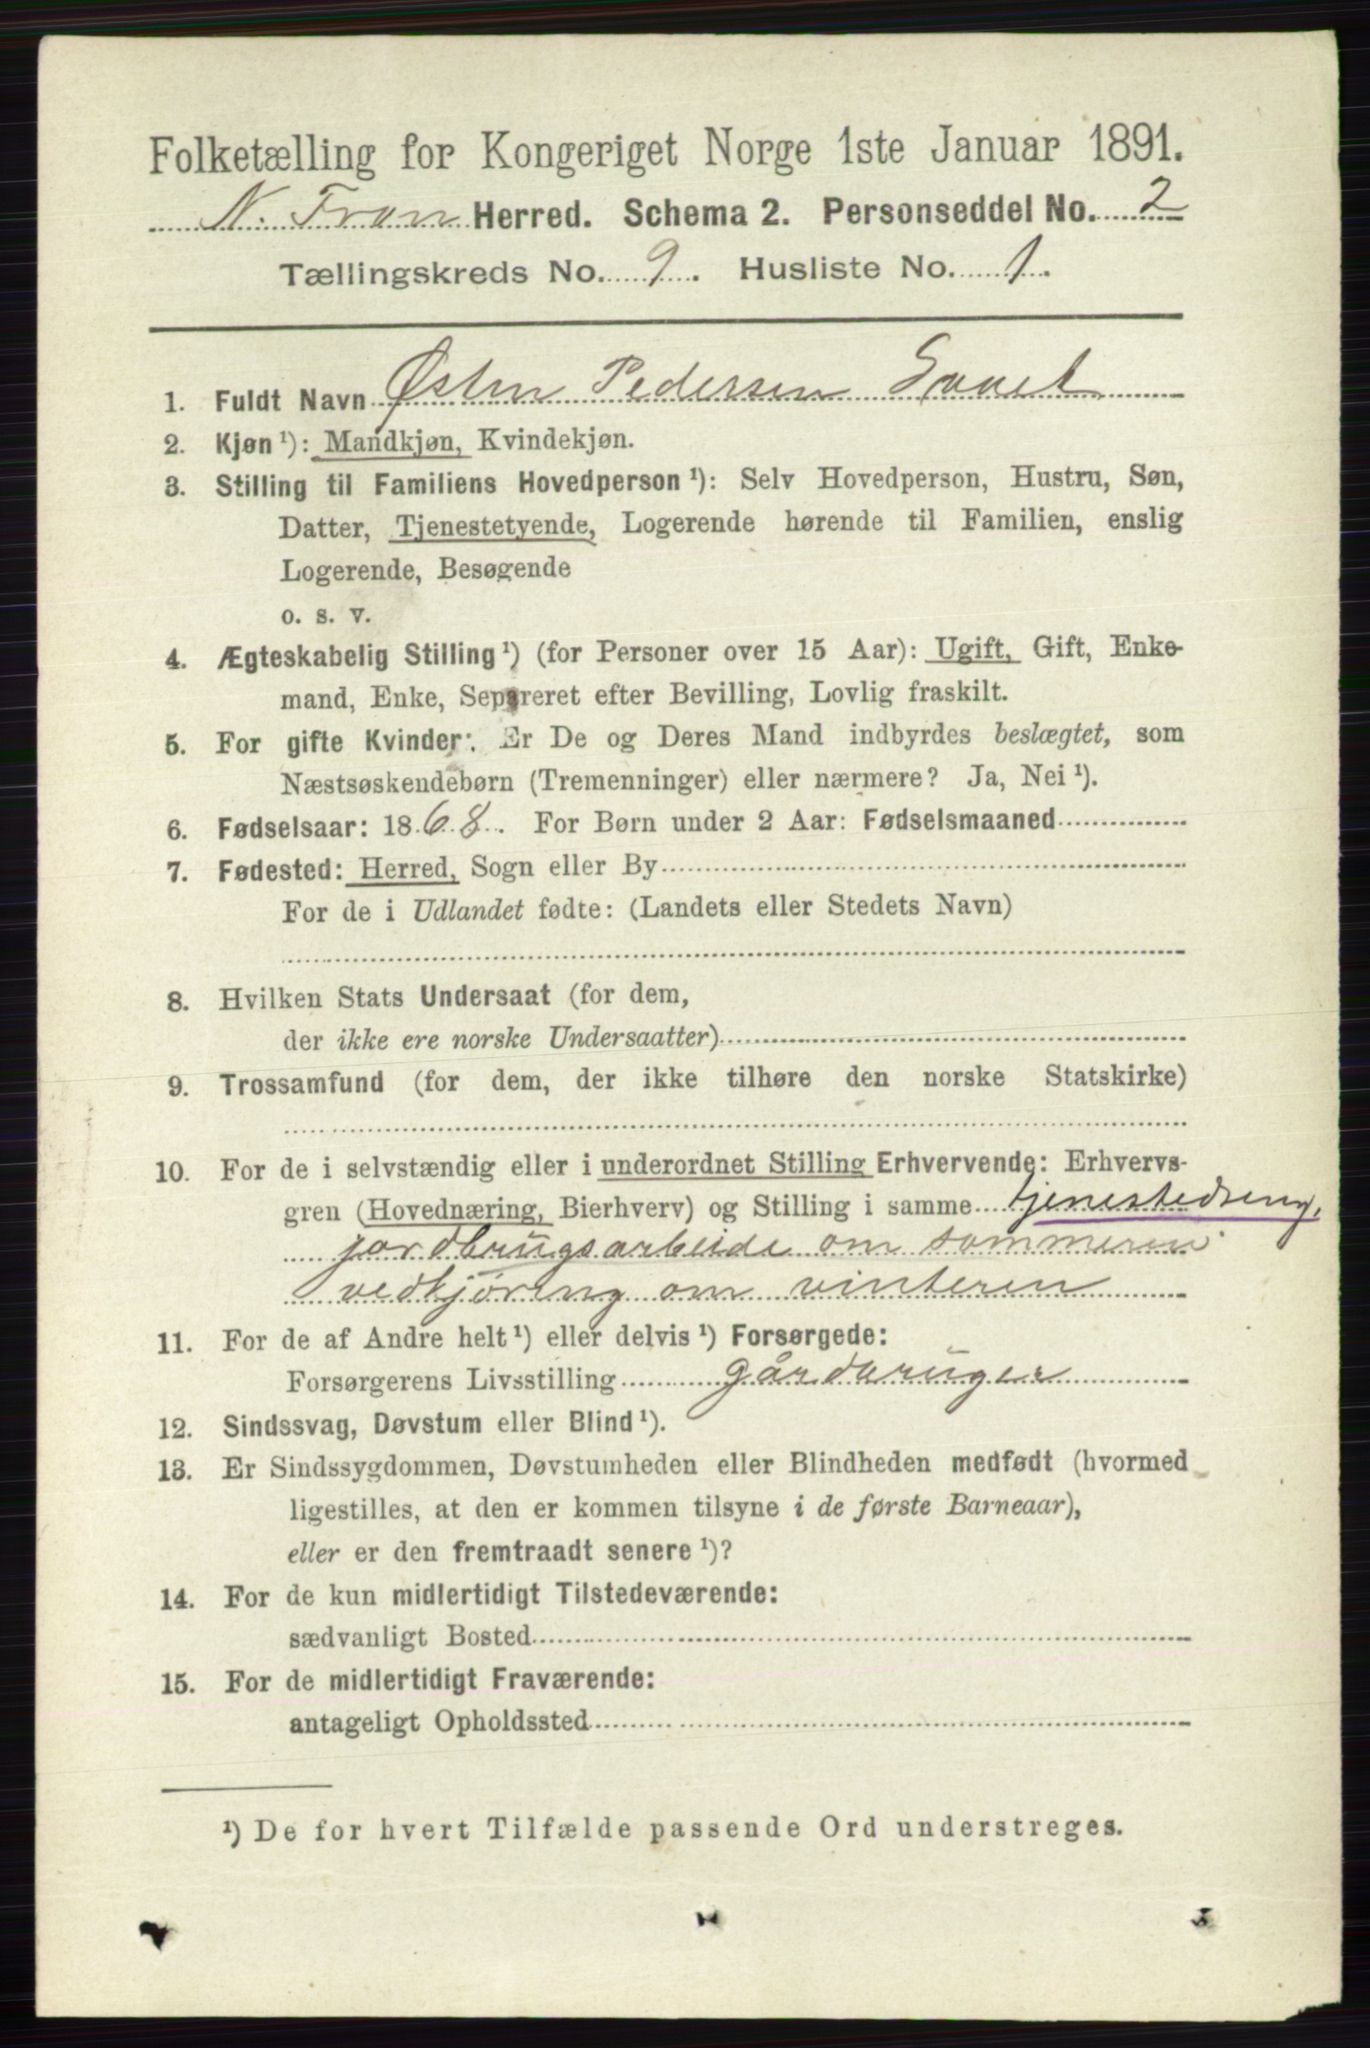 Folketælling for Kongeriget Norge 1ste Januar 1891.
N. Fron Herred. Schema 2. Personseddel No. 2
Tællingskreds No. 9. Husliste No. 1.
1. Fuldt Navn Østen Pedersen
2. Kjøn ¹): Mandkjøn, Kvindekjøn.
3. Stilling til Familiens Hovedperson ¹): Selv Hovedperson, Hustru, Søn,
Datter, Tjenestetyende, Logerende hørende til Familien, enslig
Logerende, Besøgende
o. s. v.
4. Ægteskabelig Stilling ¹) (for Personer over 15 Aar): Ugift, Gift, Enke-
mand, Enke, Separeret efter Bevilling, Lovlig fraskilt.
5. For gifte Kvinder: Er De og Deres Mand indbyrdes beslægtet, som
Næstsøskendebørn (Tremenninger) eller nærmere? Ja, Nei ¹).
6. Fødselsaar: 1868. For Børn under 2 Aar: Fødselsmaaned
7. Fødested: Herred, Sogn eller By
For de i Udlandet fødte: (Landets eller Stedets Navn)
8. Hvilken Stats Undersaat (for dem,
der ikke ere norske Undersaatter)
9. Trossamfund (for dem, der ikke tilhøre den norske Statskirke)
10. For de i selvstændig eller i underordnet Stilling Erhvervende: Erhvervs-
gren (Hovednæring, Bierhverv) og Stilling i samme tjenestedreng,
jordbrugsarbeide om sommeren
vedkjøring om vinteren
11. For de af Andre helt ¹) eller delvis ¹) Forsørgede:
Forsørgerens Livsstilling gårdbruger
12. Sindssvag, Døvstum eller Blind ¹).
13. Er Sindssygdommen, Døvstumheden eller Blindheden medfødt (hvormed
ligestilles, at den er kommen tilsyne i de første Barneaar),
eller er den fremtraadt senere ¹)?
14. For de kun midlertidigt Tilstedeværende:
sædvanligt Bosted
15. For de midlertidigt Fraværende:
antageligt Opholdssted
¹) De for hvert Tilfælde passende Ord understreges.